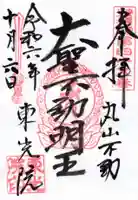 奉拝
丸山不動
大聖不動明王
東光院
令和六年
十月六日